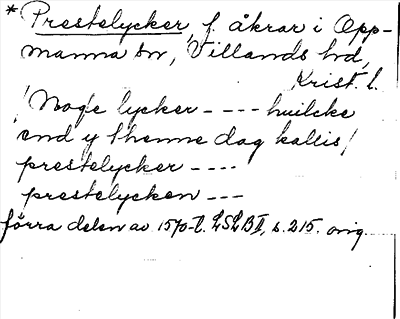 * Prestelycker, f. åkrar i Opp-
manna sn, Villands hd,
Krist. l.
/Noge lycker - - - - huilcke
end y thenne dag kallis/
prestelycker - - - -
prestelycken - - -
förra delen av 1570-t. LSLB II, s. 215. orig.